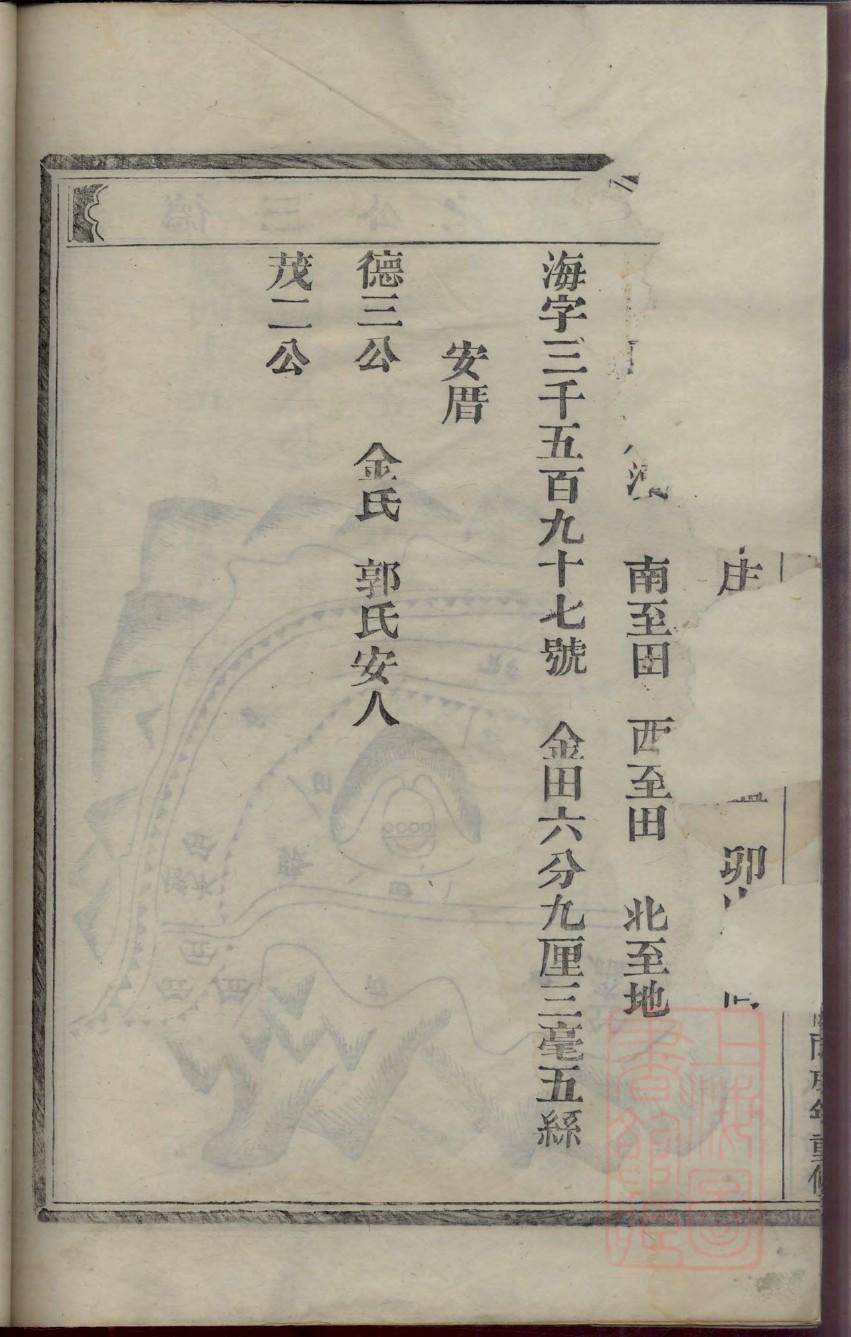 庄 卯
南至田 西至田 北至地
海字三千五百九十七號 金田六分九厘三毫五絲
安厝
德三公 金氏 郭氏安人
茂二公
重修
上海圖書館藏